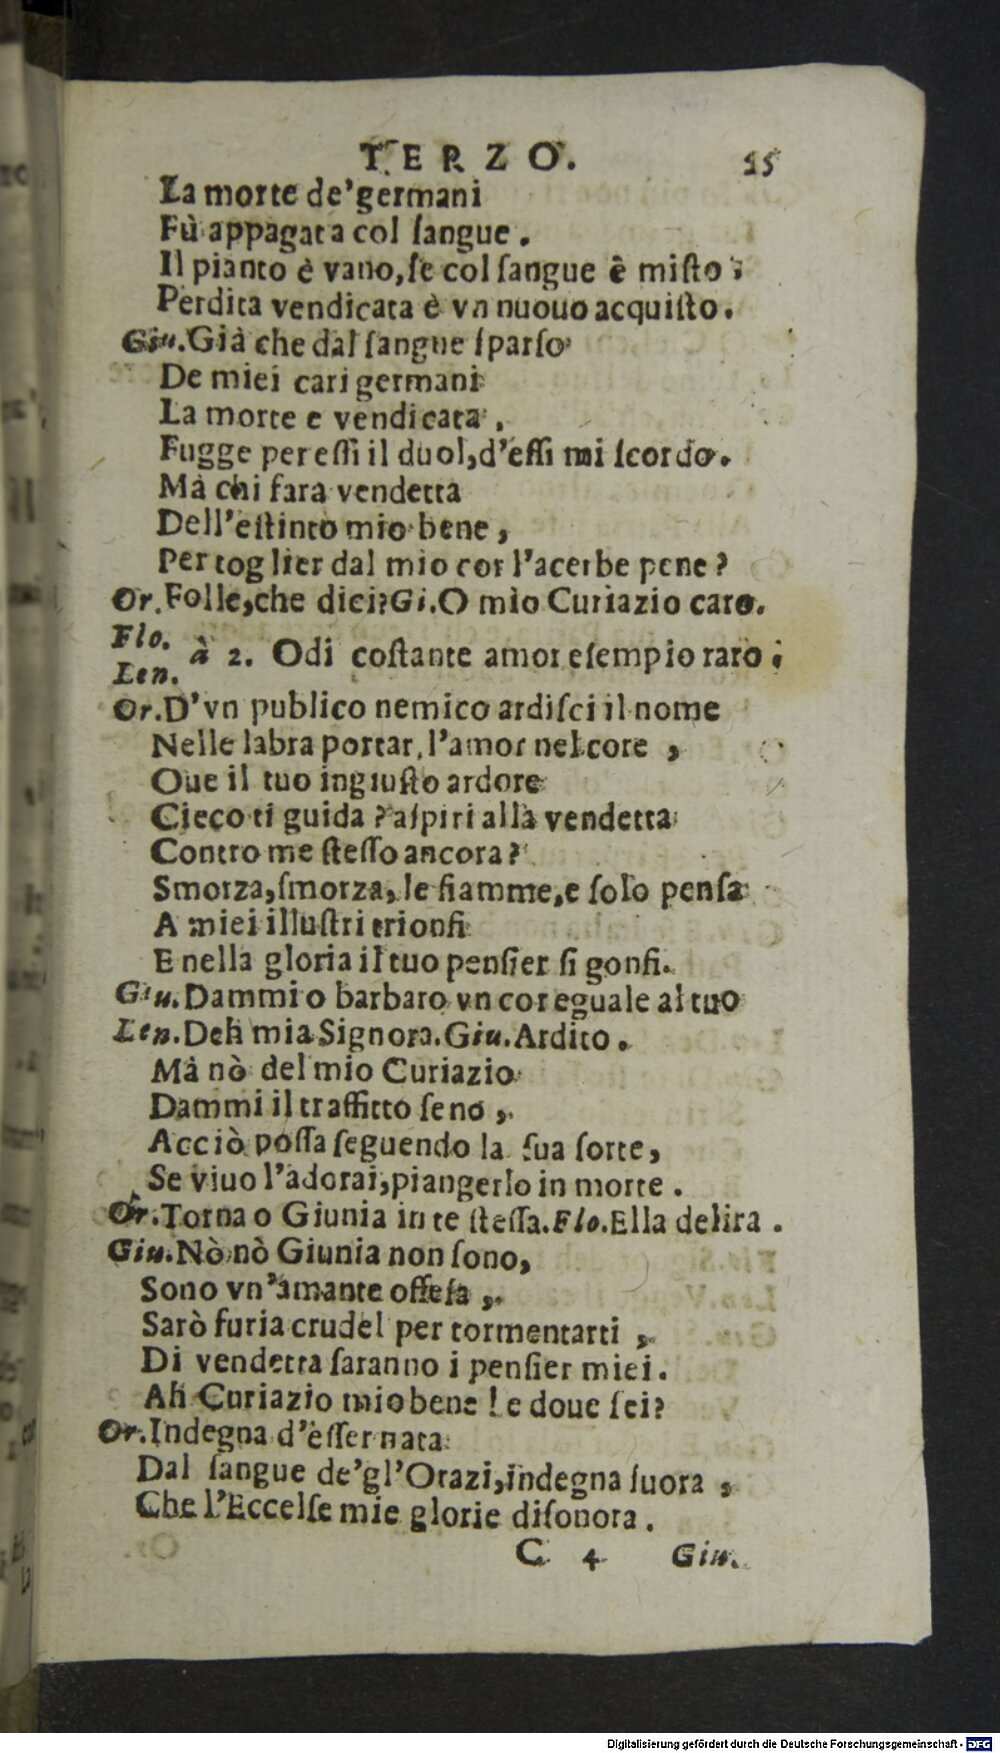 TERZO. 55
La morte de'germani
Fù appagata col ſangue.
Il pianto è vano, ſe col ſangue è miſto;
Perdita vendicata è vn nuouo acquiſto.
Giu. Già che dal ſangue ſparſo
De miei cari germani
La morte e vendicata,
Fugge per eſſi il duol, d'eſſi mi ſcordo.
Mà chi fara vendetta
Dell'eſtinto mio bene,
Per toglier dal mio cor l'acerbe pene?
Or. Folle, che dici? Gi. O mio Curiazio caro.
Flo.
Len. à 2. Odi coſtante amor eſempio raro;
Or. D'vn publico nemico ardiſci il nome
Nelle labra portar, l'amor nel core,
Oue il tuo ingiuſto ardore
Cieco ti guida? aſpiri alla vendetta
Contro me ſteſſo ancora?
Smorza, ſmorza, le fiamme, e ſolo penſa
A miei illuſtri trionfi
E nella gloria il tuo penſier ſi gonfi.
Giu. Dammi o barbaro vn cor eguale al tuo
Len. Deh mia Signora. Giu. Ardito.
Mà nò del mio Curiazio
Dammi il traffitto ſeno,
Acciò poſſa ſeguendo la ſua ſorte,
Se viuo l'adorai, piangerlo in morte.
Or. Torna o Giunia in te ſteſſa. Flo. Ella delira.
Giu. Nò nò Giunia non ſono,
Sono vn'amante offeſa,
Sarò furia crudel per tormentarti,
Di vendetta ſaranno i penſier miei.
Ah Curiazio mio bene! e doue ſei?
Or. Indegna d'eſſer nata
Dal ſangue de'gl'Orazi, indegna ſuora,
Che l'Eccelſe mie glorie diſonora.
C 4 Giu.
Digitalisierung gefördert durch die Deutsche Forschungsgemeinschaft - DFG